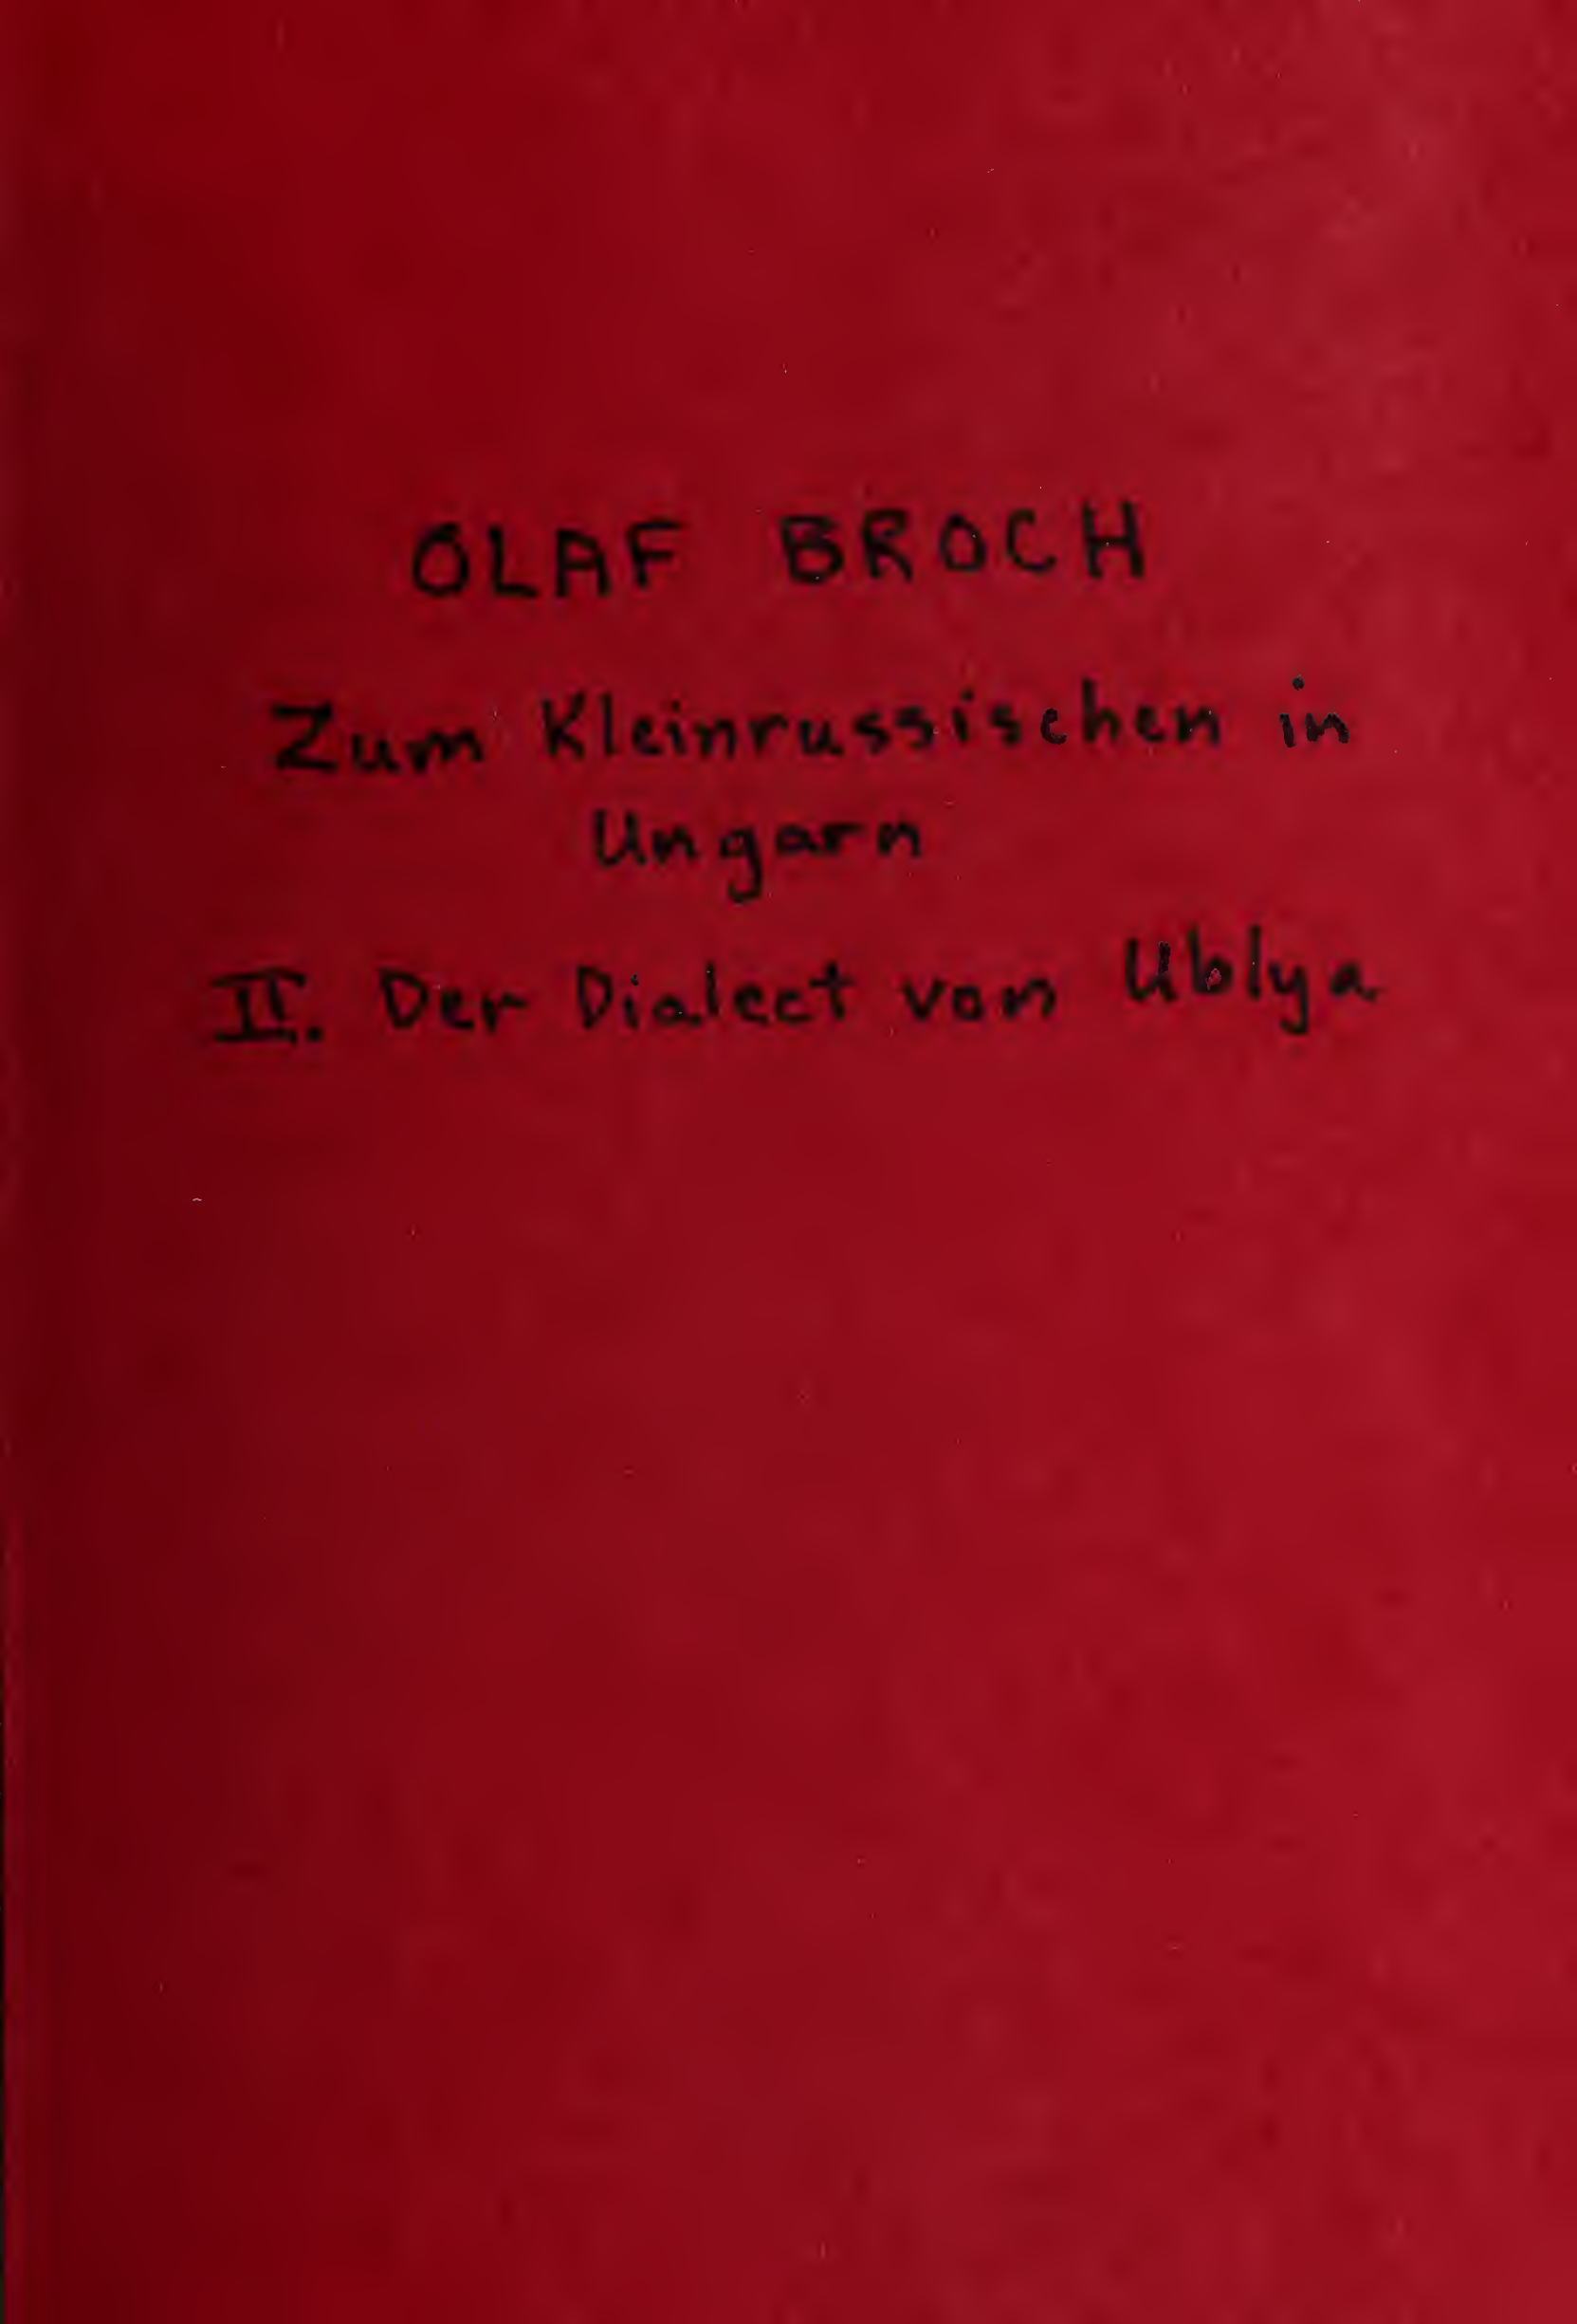 OLAF BROCH
Zum Kleinrussischen in
Ungarn
II. Der Dialect von Ublya